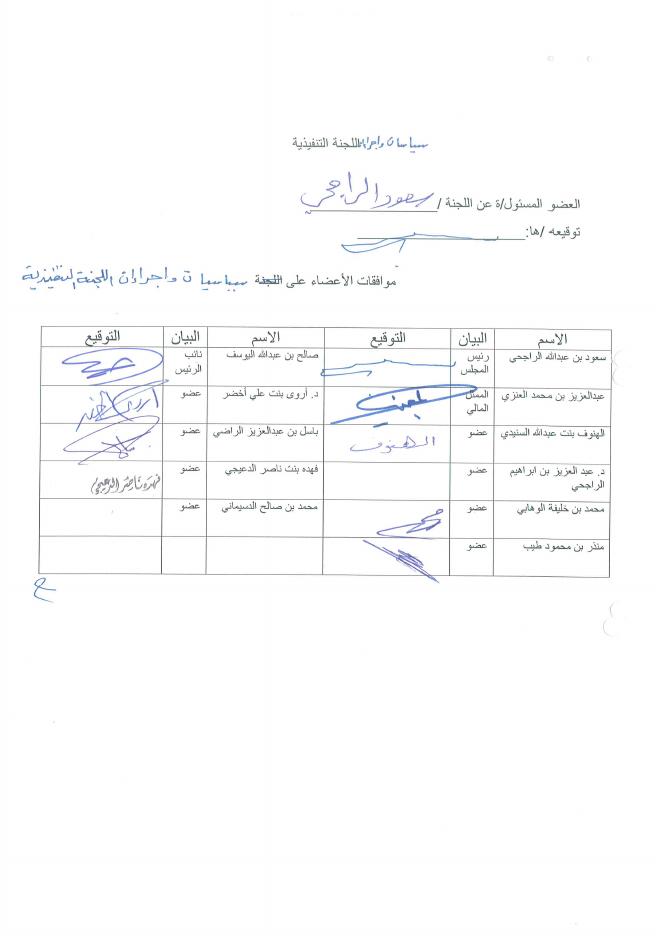 سياسات واجراءات اللجنة التنفيذية
العضو المسئول/ة عن اللجنة / سعود الراجحي
توقيعه /ها:
موافقات الأعضاء على اللجنة سياسيات واجراءات اللجنة التنفيذية
الاسم البيان التوقيع الاسم البيان التوقيع
سعود بن عبدالله الراجحي رئيس المجلس صالح بن عبدالله اليوسف نائب الرئيس
عبدالعزيز بن محمد العنزي الممثل المالي د. أروى بنت علي أخضر عضو أروى أخضر
الهنوف بنت عبدالله السنيدي عضو الهنوف باسل بن عبدالعزيز الراضي عضو
د. عبد العزيز بن ابراهيم الراجحي عضو فهده بنت ناصر الدعيجي عضو فهده ناصر الدعيجي
محمد بن خليفة الوهابي عضو محمد بن صالح الدسيماني عضو
منذر بن محمود طيب عضو